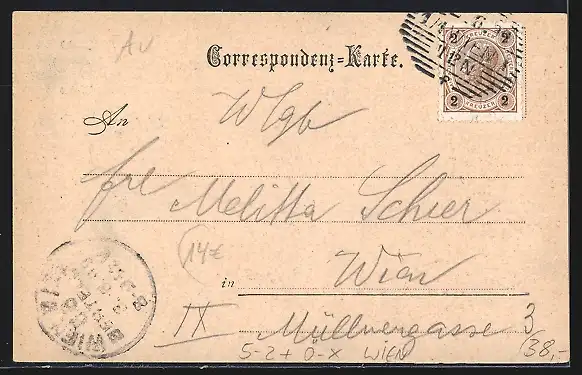 Av
Correspondenz-Karte.
2 KREUZER 2
WIEN
An
Wlgb
frl Melitta Scheer
14€
in Wien
IX Müllnergasse 3
WIEN
BESTELLT
5-2+ Ö-X WIEN
38,-